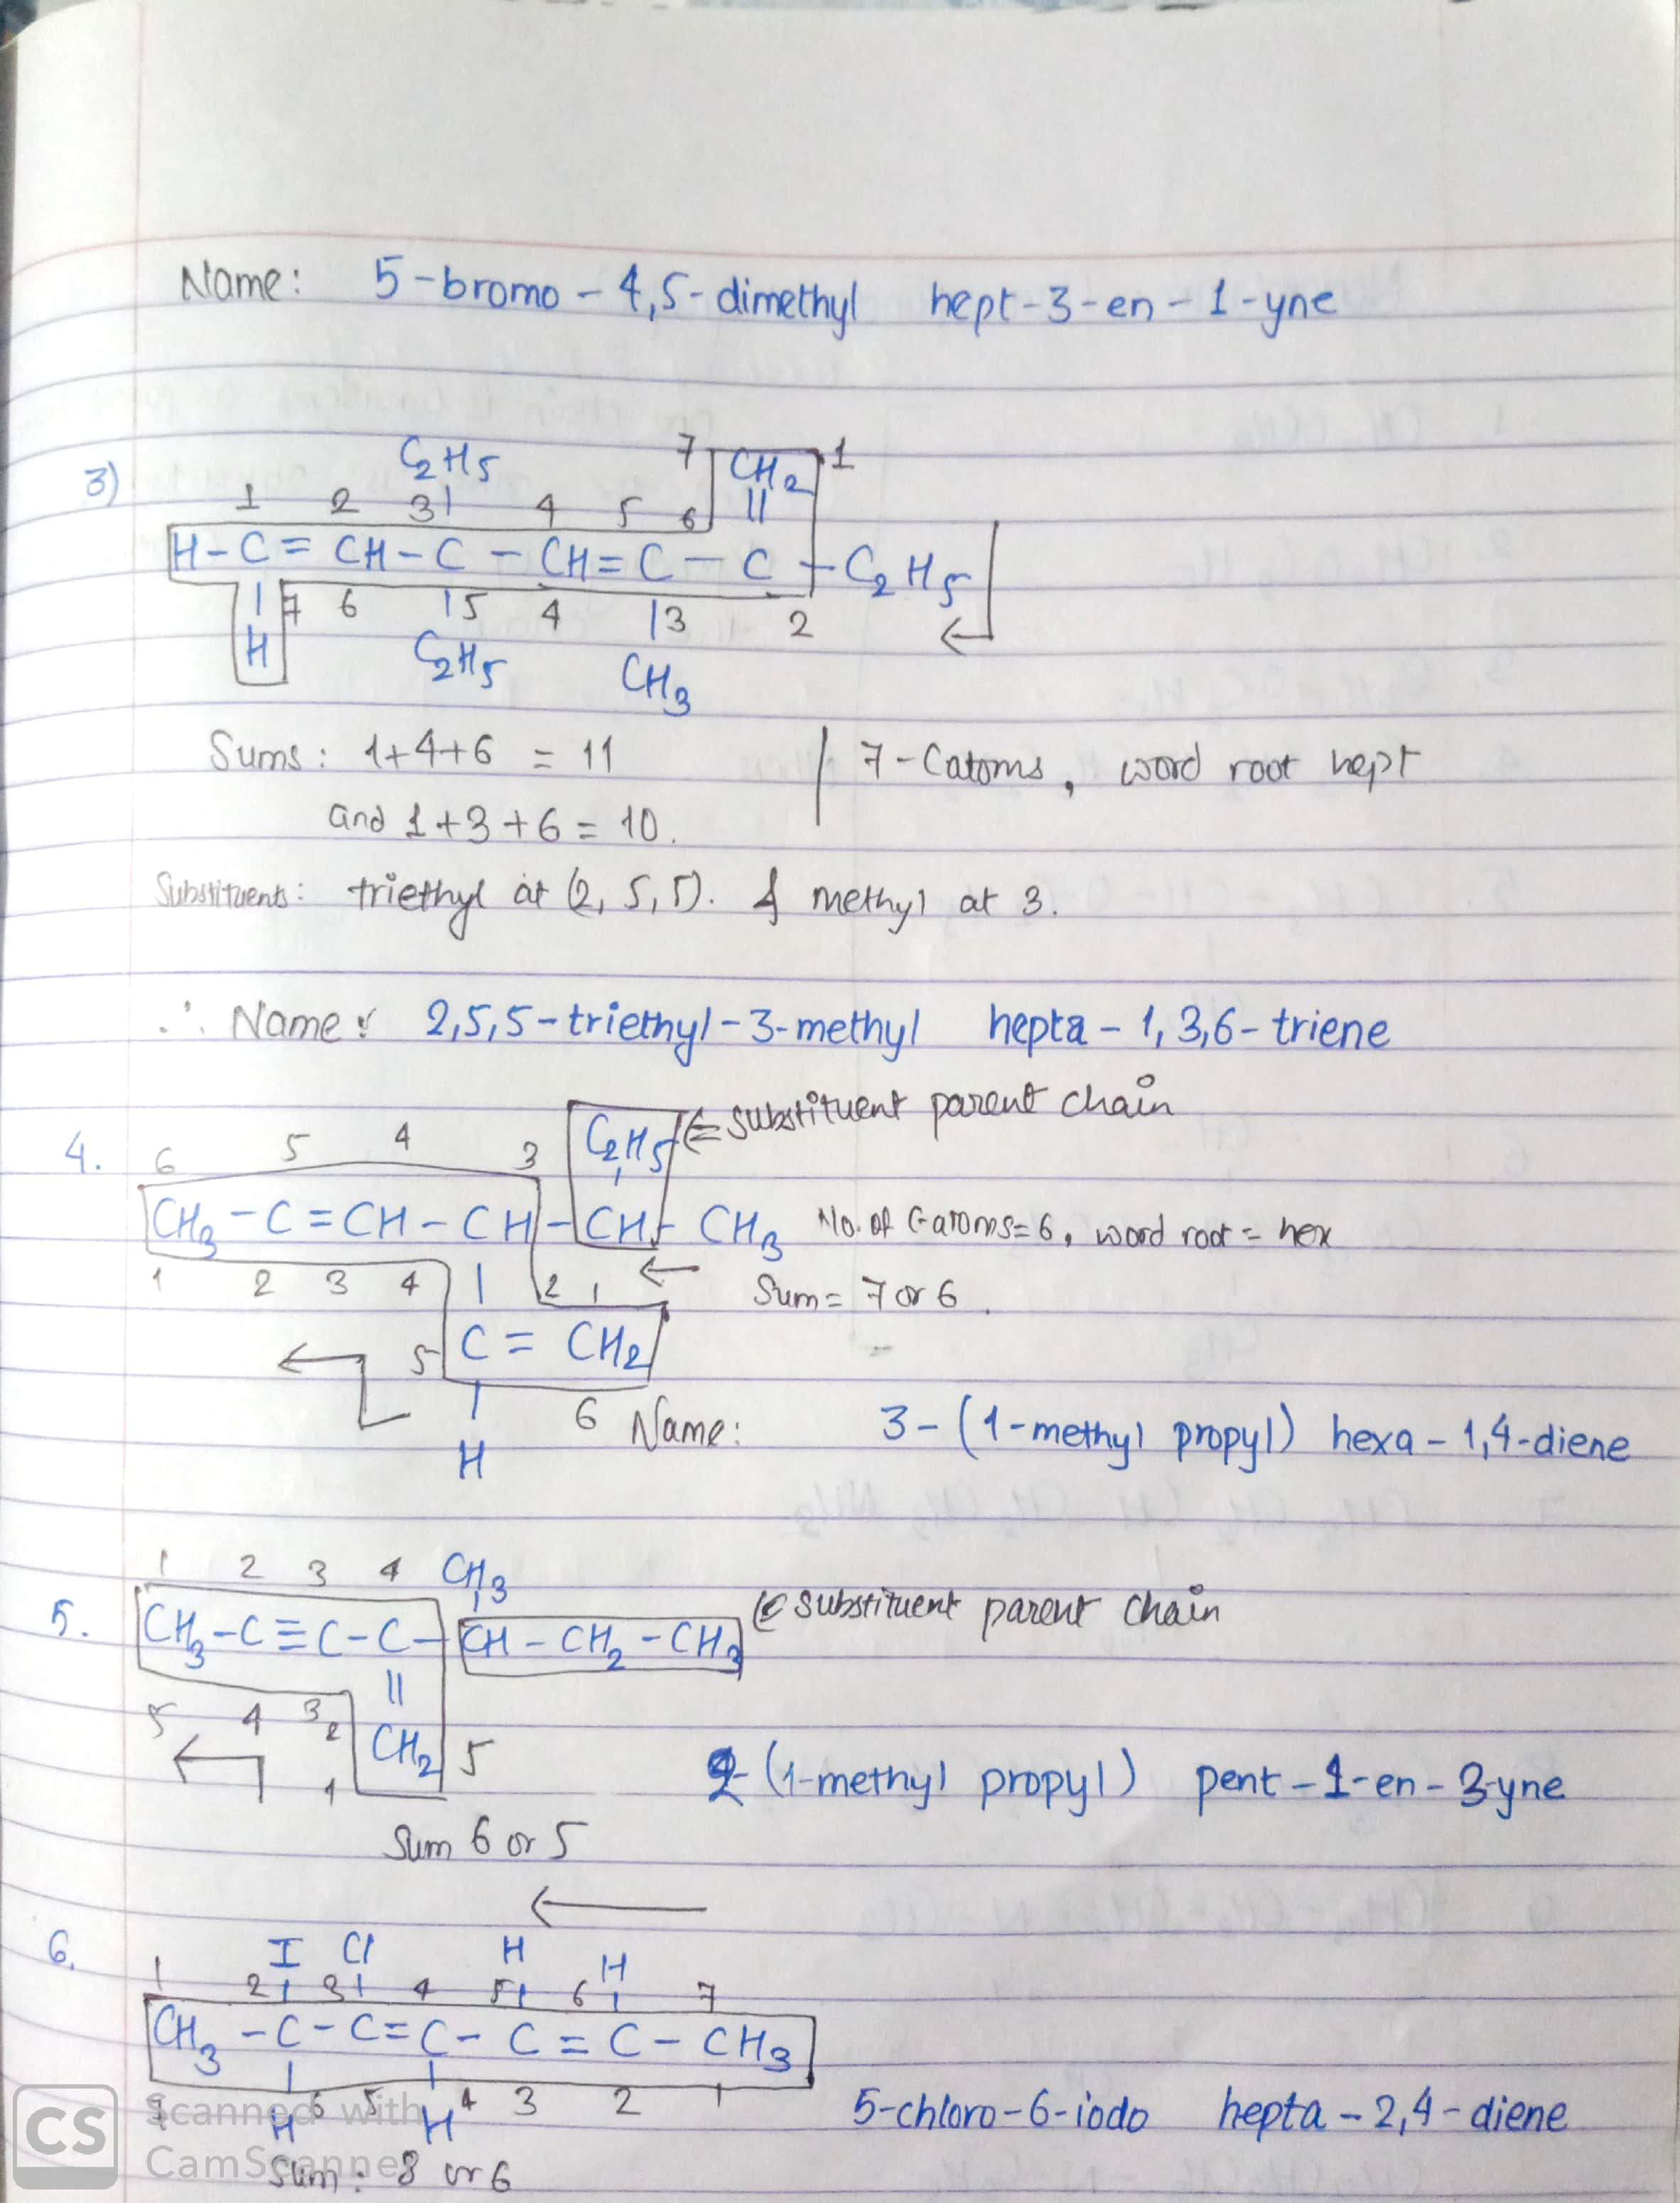 Name: 5-bromo-4,5-dimethyl hept-3-en-1-yne
3)
C2H5 7 CH2 1
1 2 3 4 5 6
H-C=CH-C-CH=C-C-C2H5
7 6 5 4 3 2
H C2H5 CH3
Sums: 1+4+6 = 11 | 7-Catoms, word root hept
and 1+3+6 = 10.
Substituents: triethyl at (2,5,5). & methyl at 3.
∴ Name: 2,5,5-triethyl-3-methyl hepta-1,3,6-triene
C2H5 ⇐ substituent parent chain
4. 6 5 4 3
CH3-C=CH-CH-CH-CH3 No. of C-atoms=6, word root = hex
1 2 3 4 2 1 ← Sum= 7 or 6.
5 C=CH2
6 Name: 3-(1-methyl propyl) hexa-1,4-diene
H
1 2 3 4 CH3
⇐ substituent parent chain
5. CH3-C≡C-C-CH-CH2-CH3
5 4 3 2
CH2 5
1
2-(1-methyl propyl) pent-1-en-3-yne
Sum 6 or 5
←
6. I Cl H H
1 2 3 4 5 6 7
CH3-C-C=C-C=C-CH3
7 6 5 4 3 2 1
H H
5-chloro-6-iodo hepta-2,4-diene
Sum: 8 or 6
CS Scanned with
CamScanner